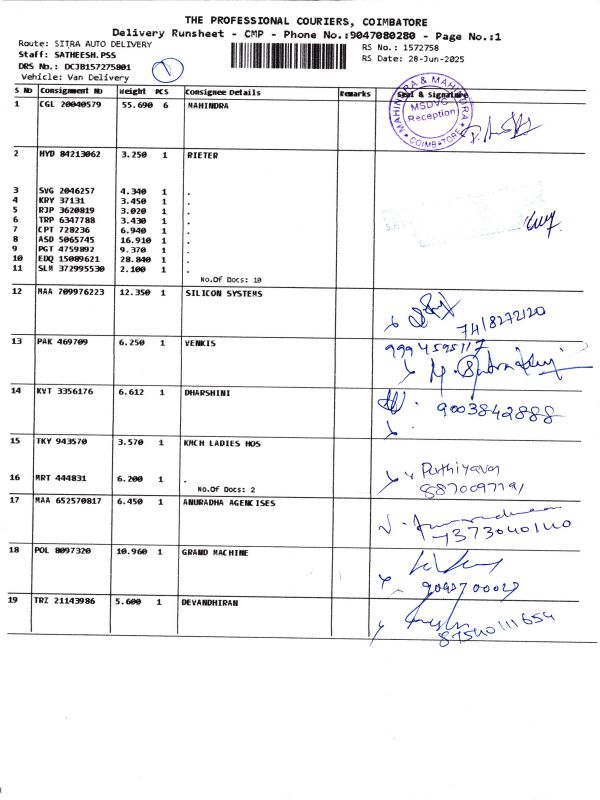 THE PROFESSIONAL COURIERS, COIMBATORE
Delivery Runsheet - CMP - Phone No.:9047080280 - Page No.:1
Route: SITRA AUTO DELIVERY
RS No.: 1572758
Staff: SATHEESH.PSS
RS Date: 28-Jun-2025
DRS No.: DCJB157275801
1
Vehicle: Van Delivery
S No Consignment No Weight PCS Consignee Details Remarks Seal & Signature
1 CGL 20040579 55.690 6 MAHINDRA
MAHINDRA & MAHINDRA
MSDVC
Reception
COIMBATORE
2 HYD 84213062 3.250 1 RIETER
3 SVG 2046257 4.340 1 .
4 KRY 37131 3.450 1 .
5 RJP 3620819 3.020 1 .
6 TRP 6347788 3.430 1 .
7 CPT 728236 6.940 1 .
8 ASD 5065745 16.910 1 .
9 PGT 4759892 9.370 1 .
10 EDQ 15089621 28.840 1 .
11 SLM 372995530 2.100 1 .
No.Of Docs: 10
12 MAA 709976223 12.350 1 SILICON SYSTEMS
7418272120
13 PAK 469709 6.250 1 VENKIS
9994595117
14 KVT 3356176 6.612 1 DHARSHINI
9003842888
15 TKY 943570 3.570 1 KMCH LADIES HOS
16 MRT 444831 6.200 1 .
No.Of Docs: 2
17 MAA 652570817 6.450 1 ANURADHA AGENCISES
18 POL 8097320 10.960 1 GRAND MACHINE
19 TRZ 21143986 5.600 1 DEVANDHIRAN